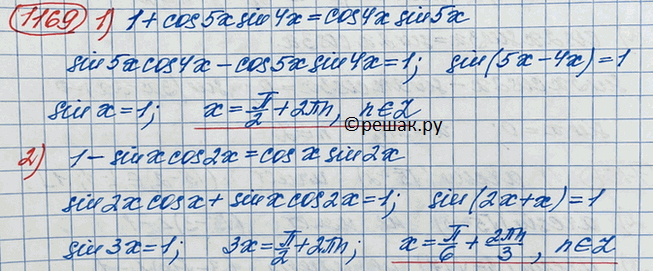 1169 1) 1 + cos 5x sin 4x = cos 4x sin 5x
sin 5x cos 4x − cos 5x sin 4x = 1; sin(5x − 4x) = 1
sin x = 1; x = π/2 + 2πn, n ∈ Z
©решак.ру
2) 1 − sin x cos 2x = cos x sin 2x
sin 2x cos x + sin x cos 2x = 1; sin(2x + x) = 1
sin 3x = 1; 3x = π/2 + 2πn; x = π/6 + 2πn/3, n ∈ Z